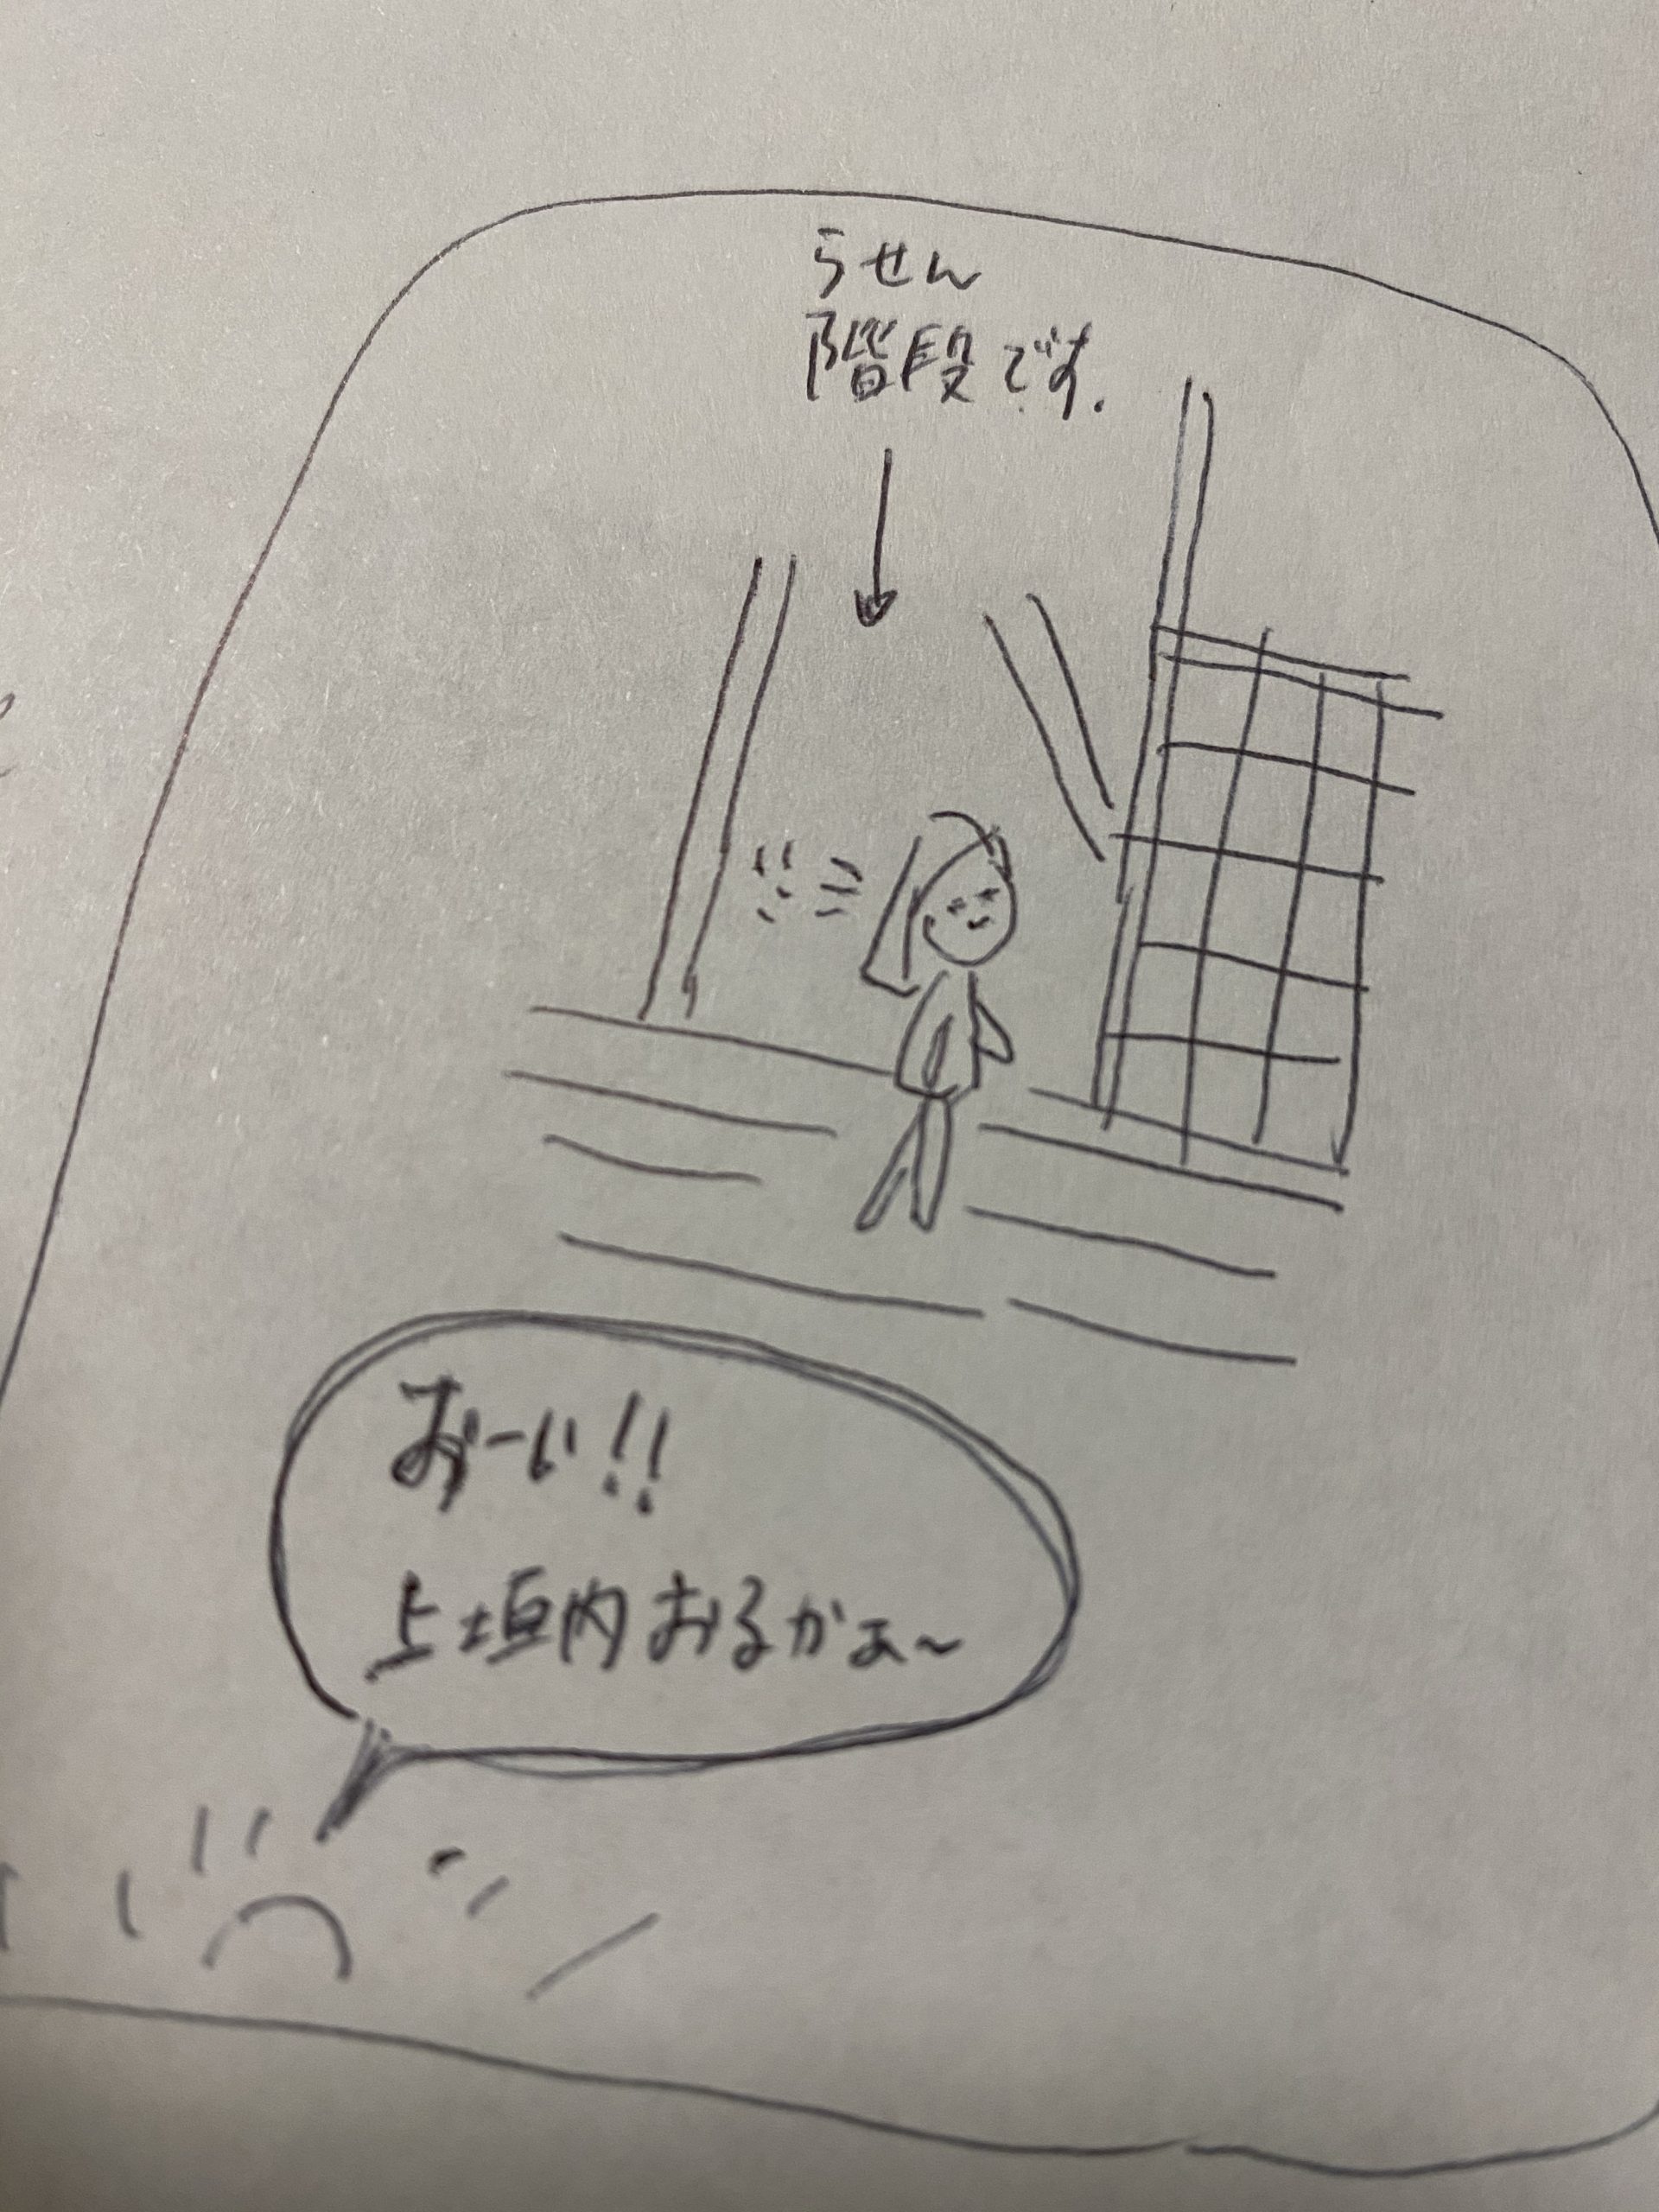 らせん
階段です.
おーい!!
上垣内おるかぁ~